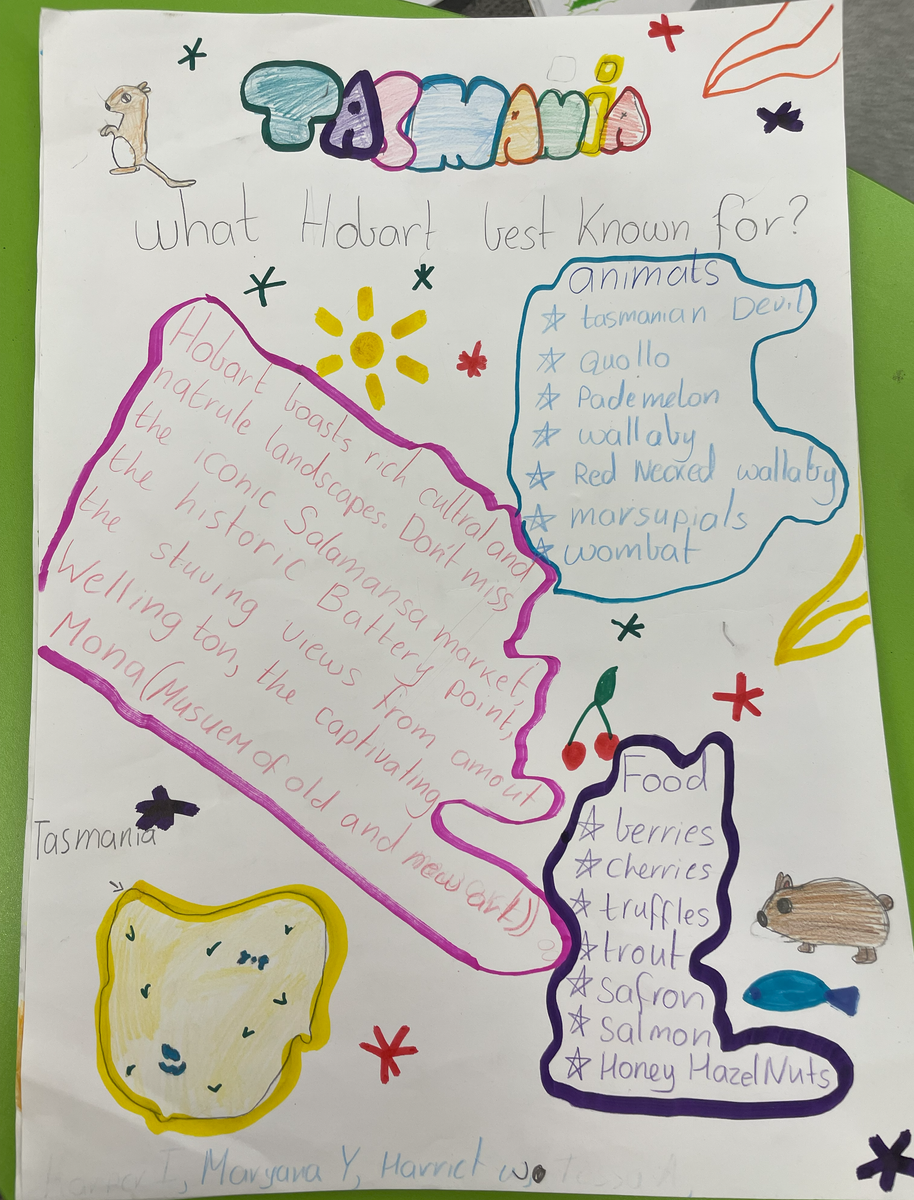 TASMANiA
what Hobart best Known for?
animats
tasmanian Devil
Quollo
Pademelon
wallaby
Red Necked wallaby
marsupials
wombat
Hobart boasts rich cultral and
natrule landscapes. Don't miss
the iconic Salamansa market,
the historic Battery point,
the stuving views from amout
Wellington, the captivaling
Mona (Musuem of old and new art))
Food
berries
Cherries
truffles
trout
Safron
Salmon
Honey HazelNuts
Tasmania
I, Maryana Y, Harriet W,